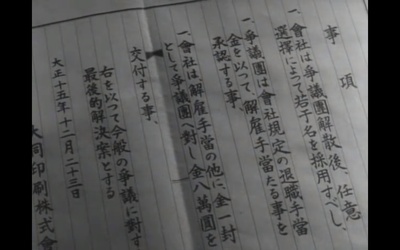 事項
一、會社は爭議團解散後、任意
選擇によつて若干名を採用すべし、
一、爭議團は會社規定の退職手當
金を以つて、解雇手當たる事を
承認する事、
一、會社は、解雇手當の他に、金一封
として爭議團へ對し金八萬圓を
交付する事、
右を以つて今般の爭議に對す
最後的解決案とする
大正十五年十二月二十三日
大同印刷株式會